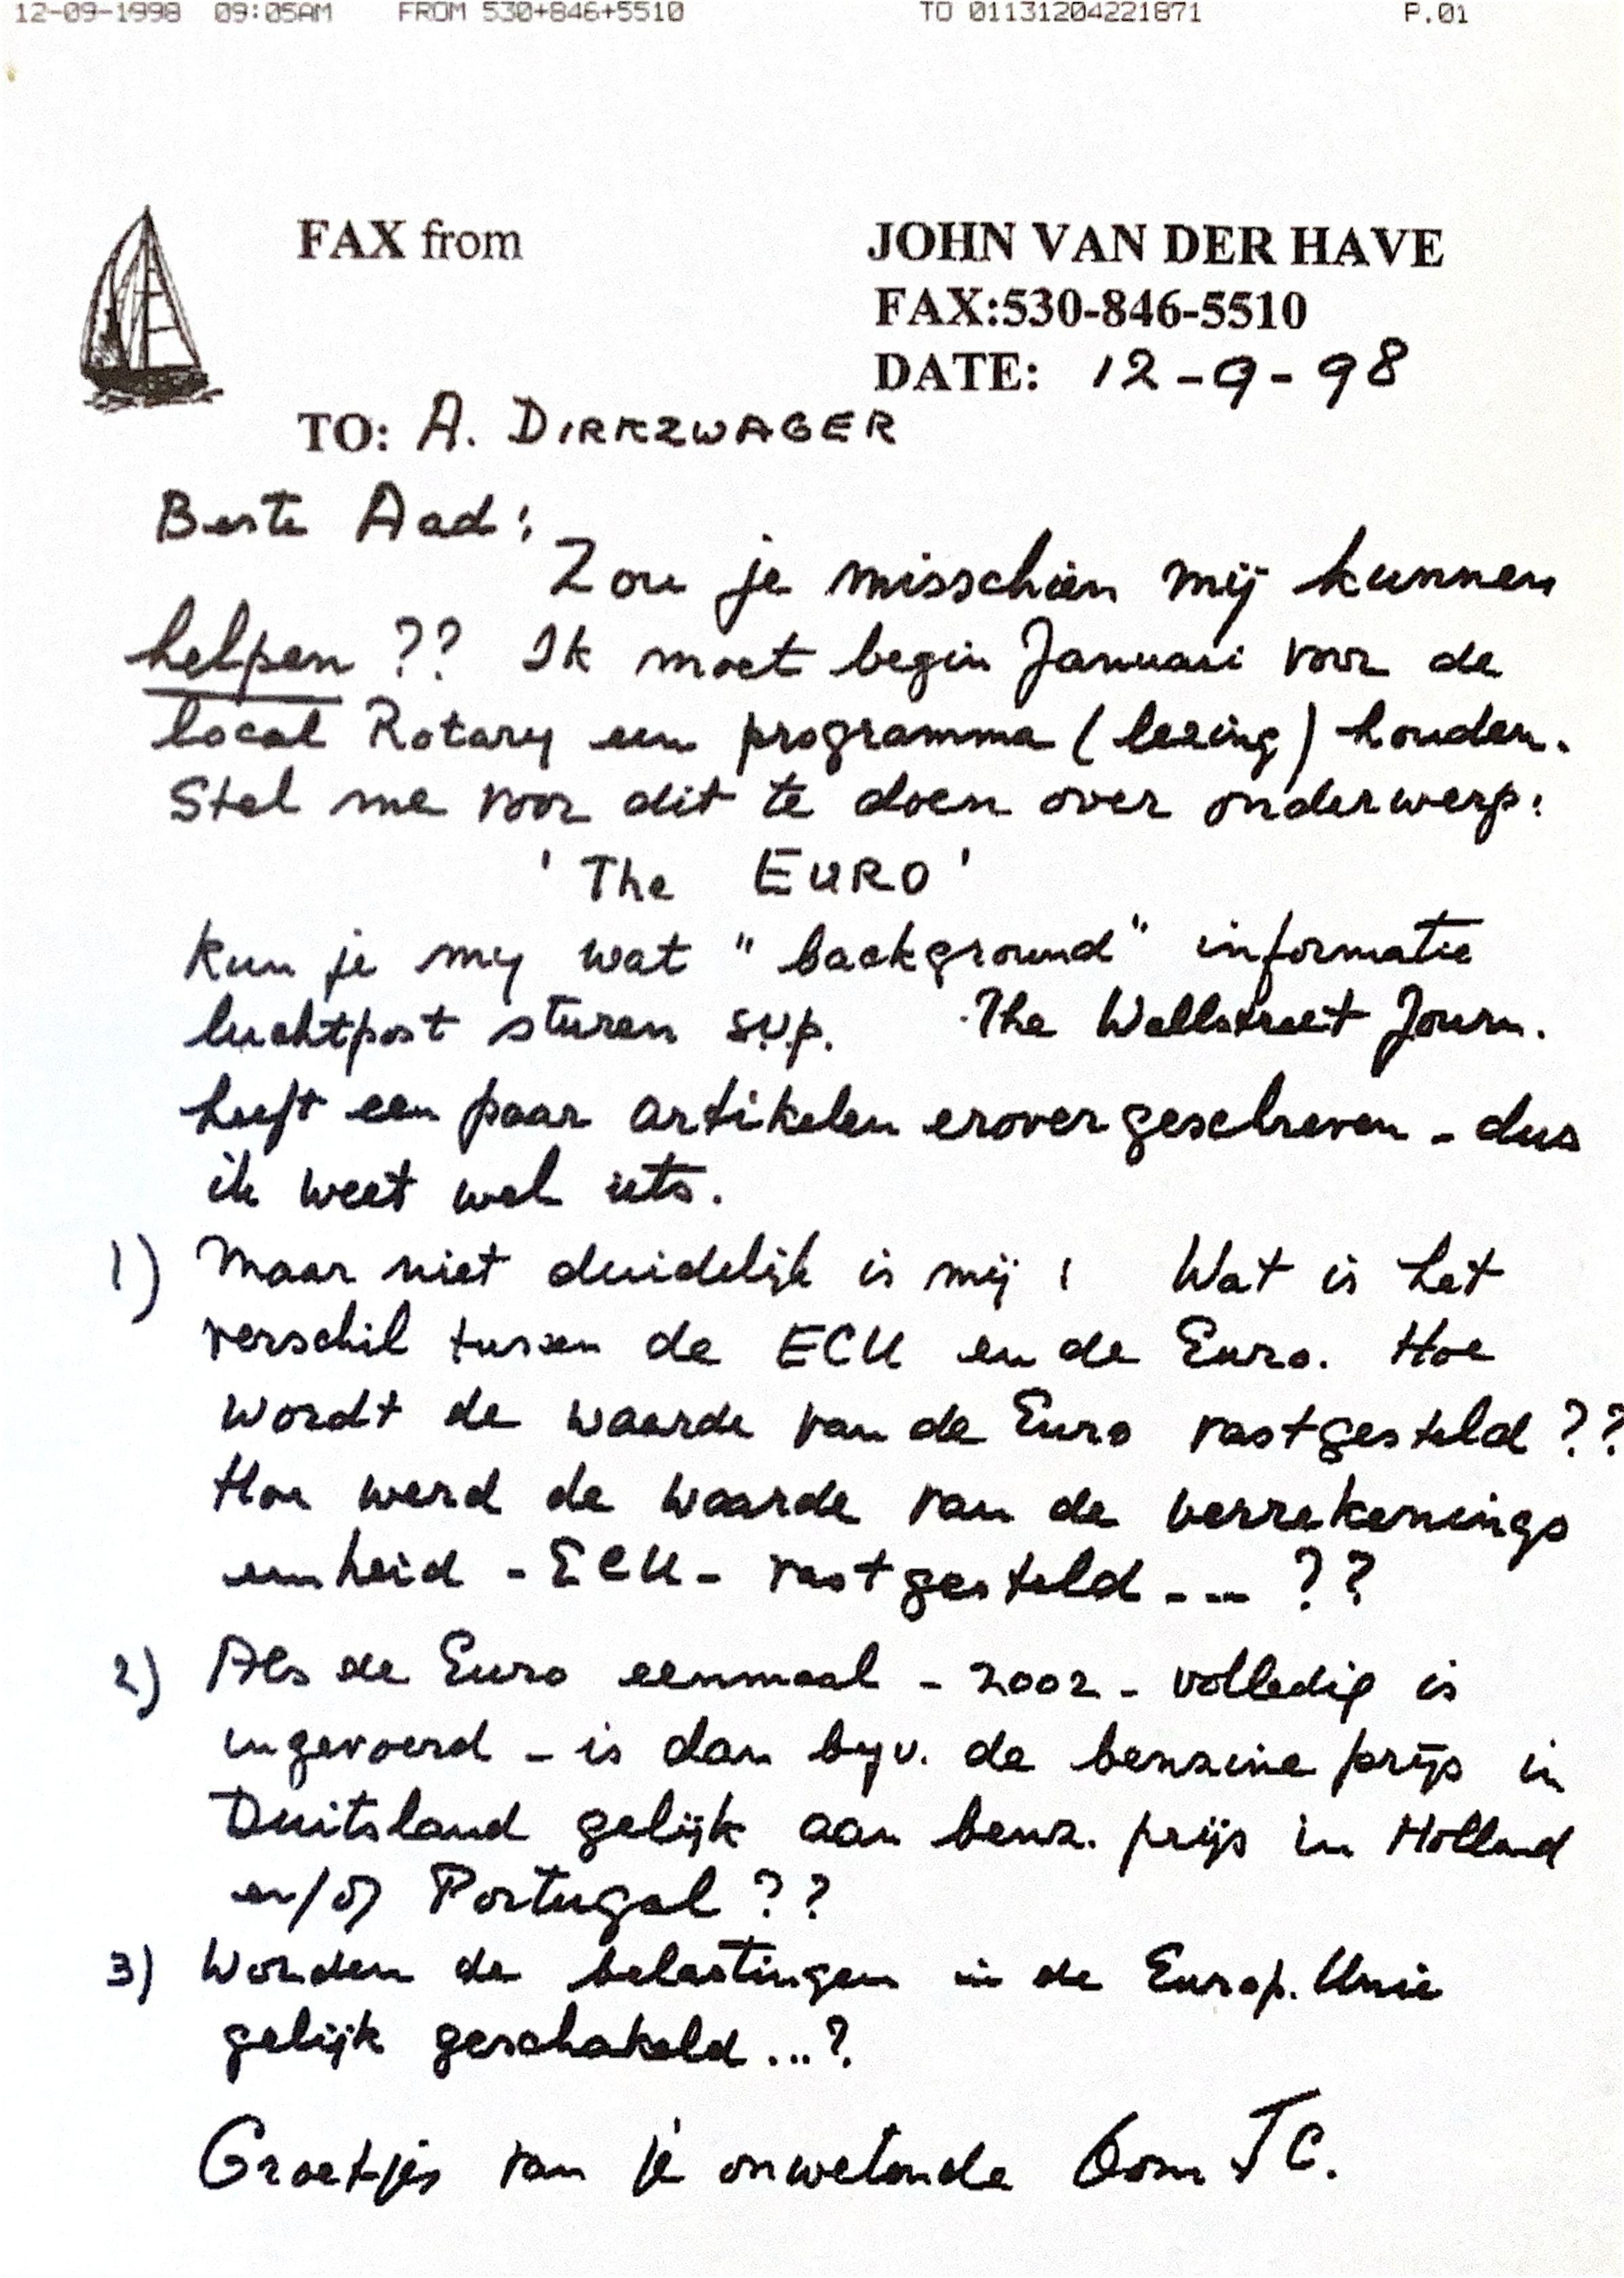 12-09-1998 09:05AM FROM 530+846+5510 TO 01131204221871 P.01
FAX from JOHN VAN DER HAVE
FAX:530-846-5510
DATE: 12-9-98
TO: A. DIRKZWAGER
Beste Aad:
Zou je misschien mij kunnen
helpen ?? Ik moet begin Januari voor de
local Rotary een programma (lezing) houden.
Stel me voor dit te doen over onderwerp:
'The EURO'
Kun je my wat "background" informatie
luchtpost sturen s.v.p. The Wallstreet Journ.
heeft een paar artikelen erover geschreven - dus
ik weet wel iets.
1) Maar niet duidelijk is mij : Wat is het
verschil tussen de ECU en de Euro. Hoe
wordt de waarde van de Euro vastgesteld ??
Hoe werd de waarde van de verrekenings
eenheid - ECU - vastgesteld --- ??
2) Als de Euro eenmaal - 2002 - volledig is
ingevoerd - is dan byv. de benzine prijs in
Duitsland gelijk aan benz. prijs in Holland
en/of Portugal ??
3) Worden de belastingen in de Europ. Unie
gelijk geschakeld ...?
Groetjes van je onwetende Oom JC.